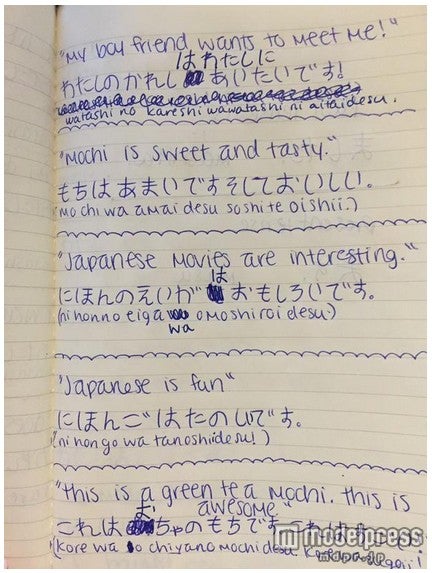 "My boy friend wants to meet me!"
はわたしに
わたしのかれし あいたいです!
watashi no kareshi wa watashi ni aitai desu.
"Mochi is sweet and tasty."
もちは あまいです そして おいしい。
(mo chi wa amai desu soshite oishii.)
"Japanese movies are interesting."
は
にほんのえいが おもしろいです。
(ni hon no eiga omoshiroi desu.)
wa
"Japanese is fun"
にほんご はたのしいです。
(ni hon go wa tanoshii desu!)
"this is a green tea mochi. this is
お awesome"
これは ちゃのもちです
(kore wa o chiya no mochi desu.
modelpress
mdpr.jp